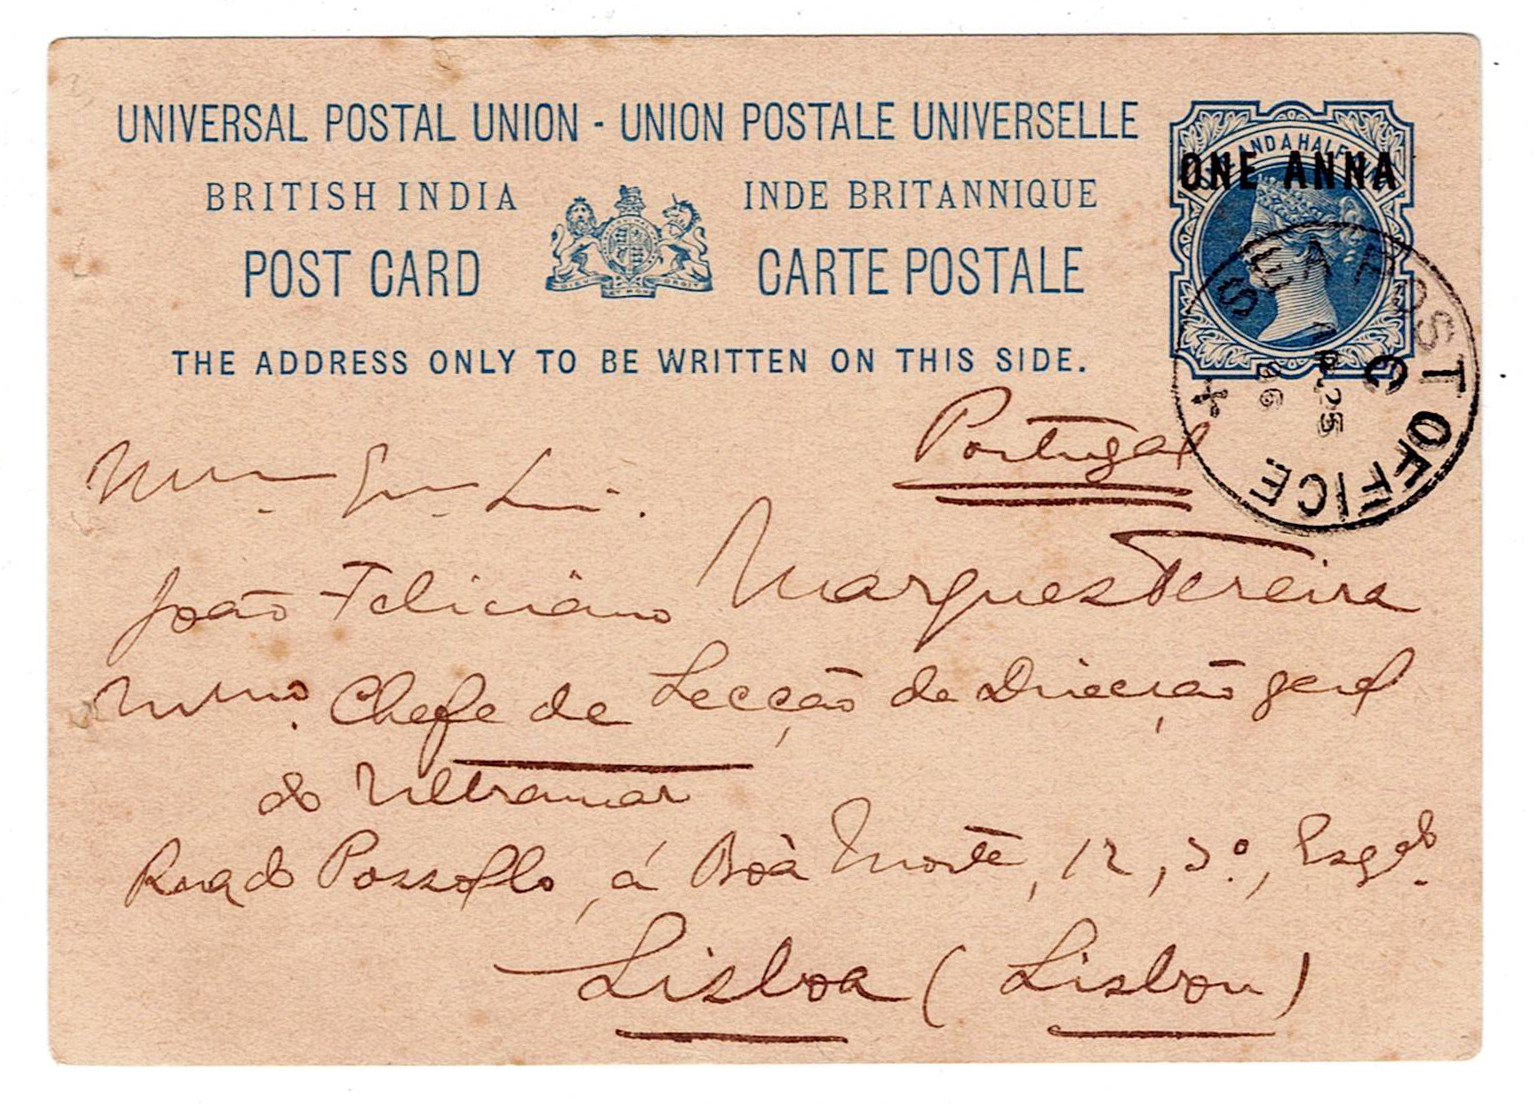 UNIVERSAL POSTAL UNION - UNION POSTALE UNIVERSELLE
BRITISH INDIA INDE BRITANNIQUE
POST CARD CARTE POSTALE
THE ADDRESS ONLY TO BE WRITTEN ON THIS SIDE.
AND A HALF
ONE ANNA
SEA POST OFFICE
C
AP 25
96
Portugal
João Feliciano Marques Pereira
Chefe de Secção da Direcção geral
do Ultramar
Rua do Possollo, á Boa Morte, 12, 3º, Esqdo.
Lisboa (Lisbon)